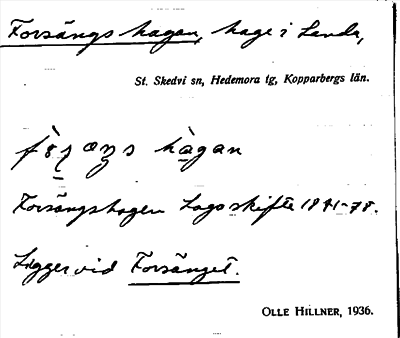 Forsängs hagan, hage i Landa,
St. Skedvi sn, Hedemora tg, Kopparbergs län.
hàgan
Forsängshagen Laga skifte 1841-78.
Ligger vid Forsänget.
OLLE HILLNER, 1936.